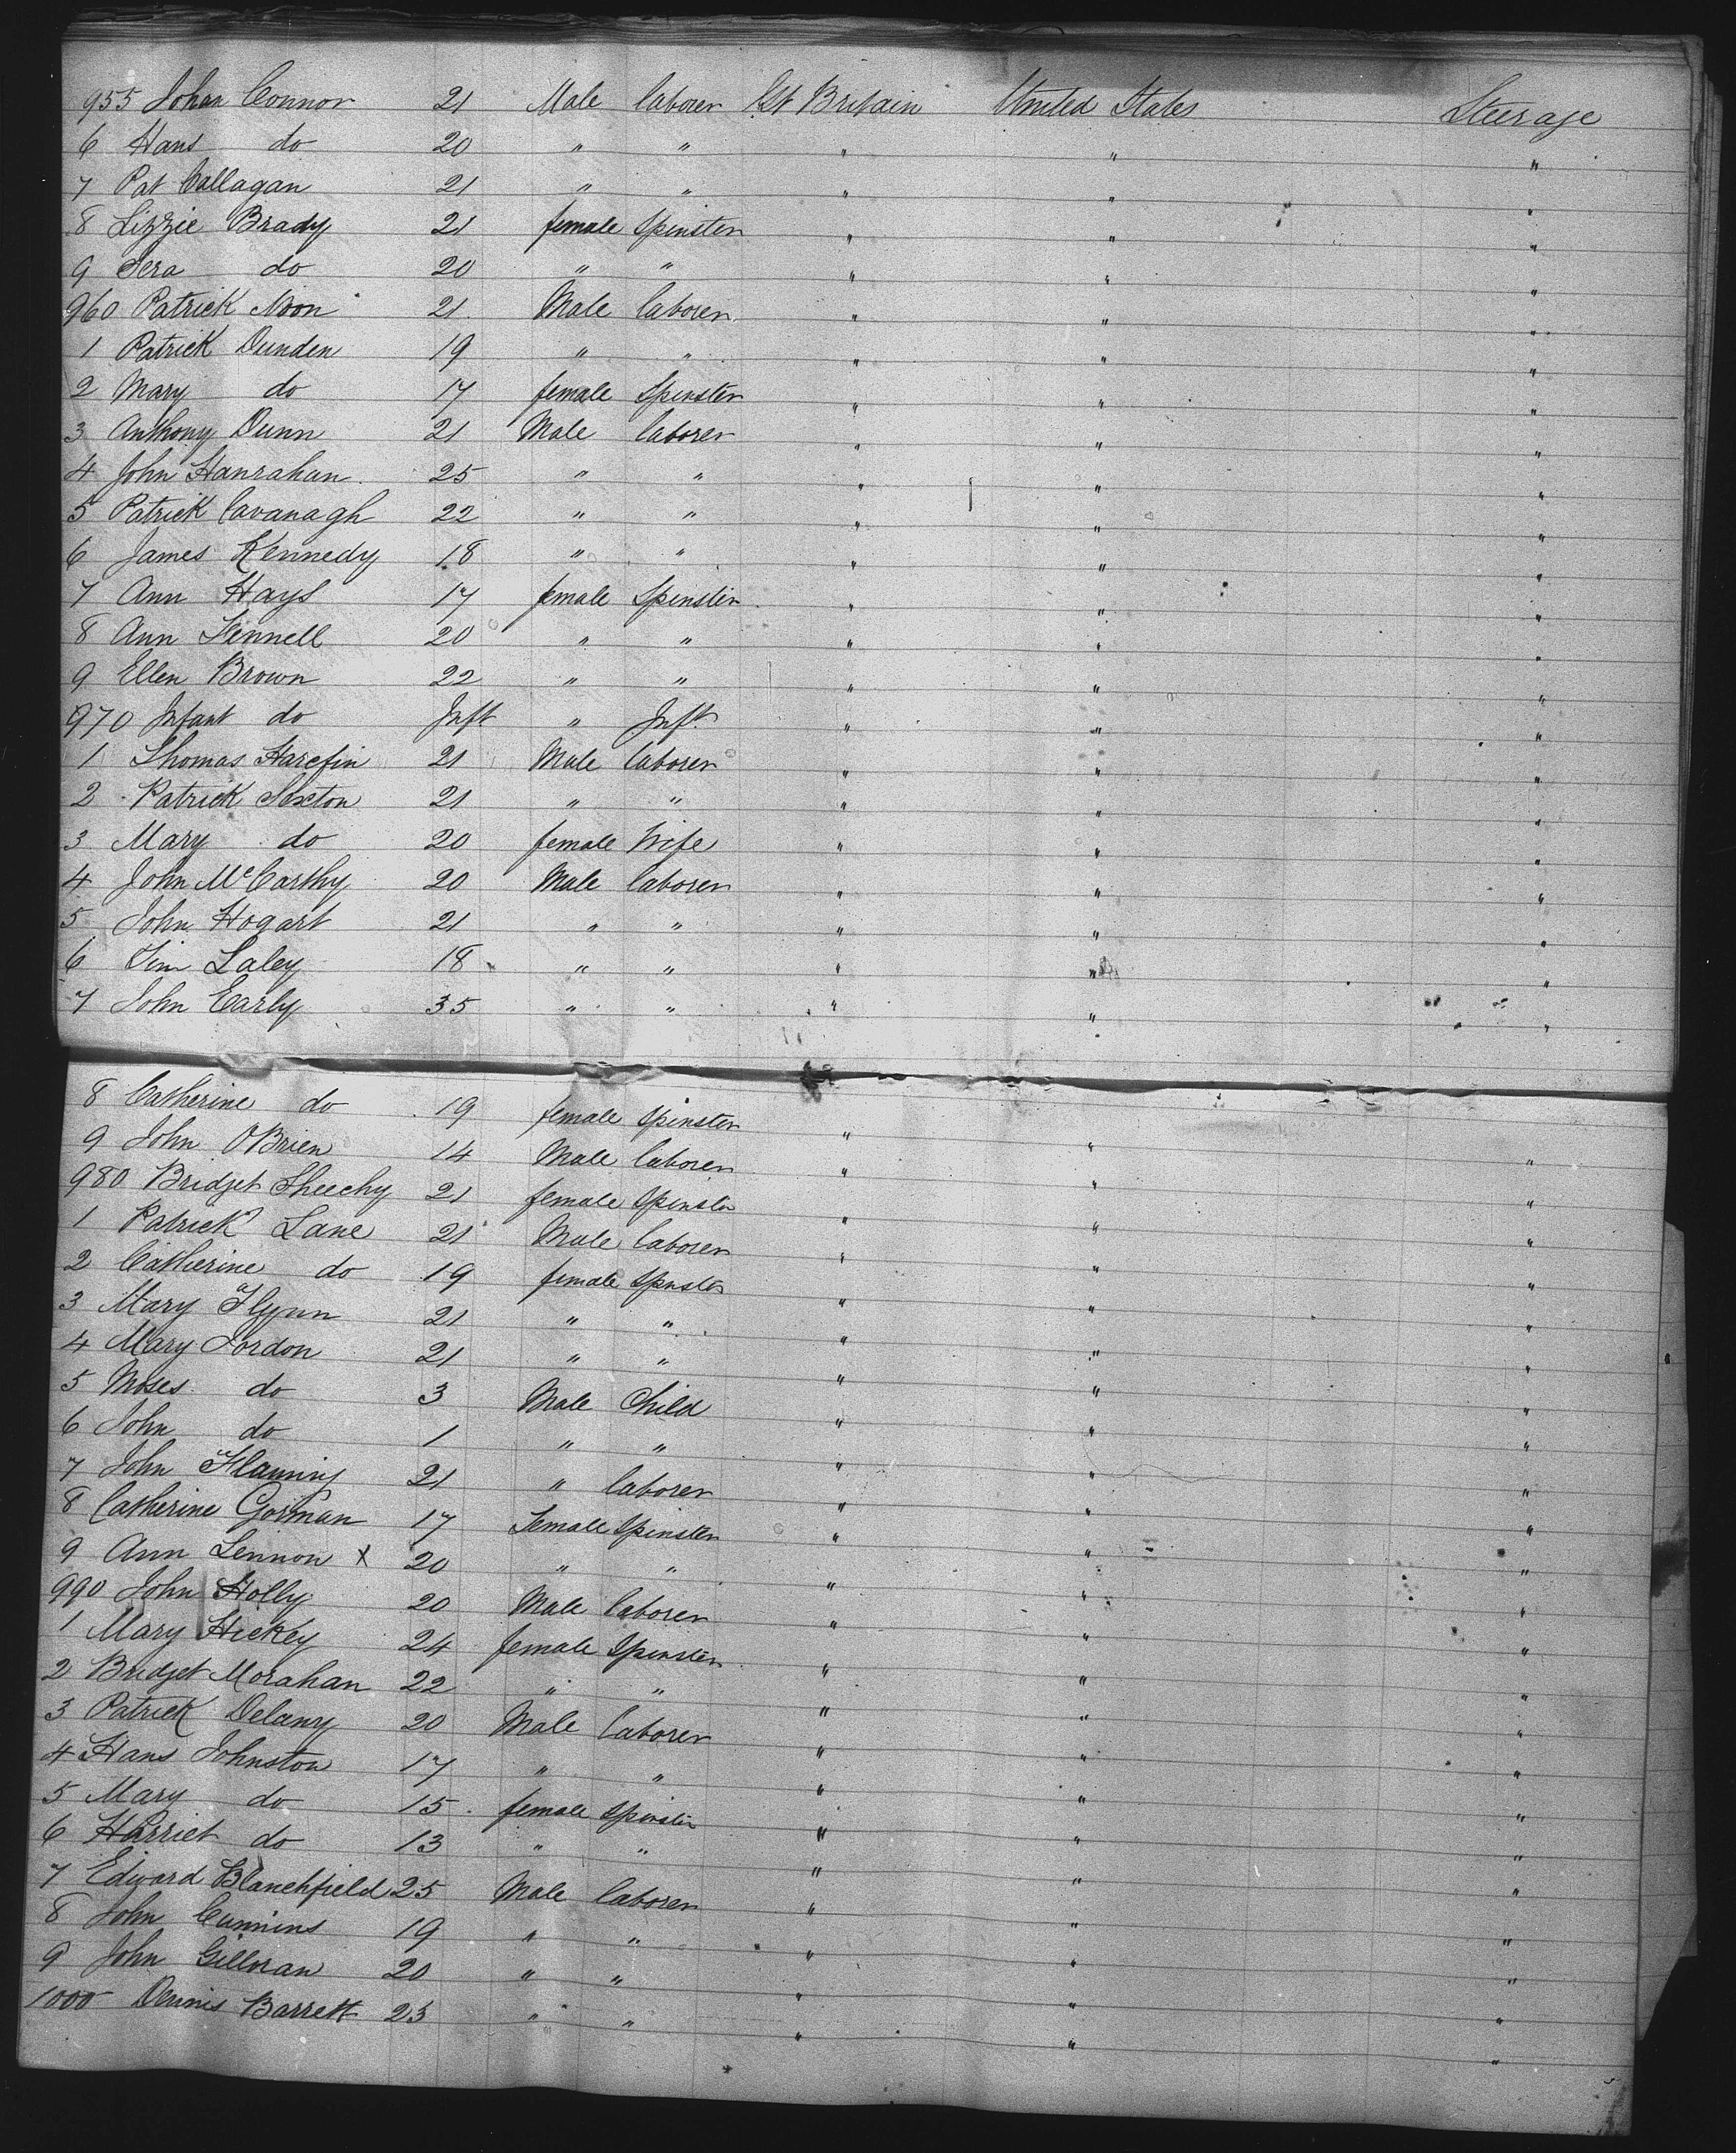 955 Johan Connor 21 Male laborer Gt Britain United States Steerage
6 Hans do 20 " " " " "
7 Pat Callagan 21 " " " " "
8 Lizzie Brady 21 female Spinster " " "
9 Sera do 20 " " " " "
960 Patrick Noon 21 Male laborer " " "
1 Patrick Dunden 19 " " " " "
2 Mary do 17 female Spinster " " "
3 Anthony Dunn 21 Male laborer " " "
4 John Hanrahan 25 " " " " "
5 Patrick Cavanagh 22 " " " " "
6 James Kennedy 18 " " " " "
7 Ann Hays 17 female Spinster " " "
8 Ann Fennell 20 " " " " "
9 Ellen Brown 22 " " " " "
970 Infant do Inft " Inft " " "
1 Thomas Harefin 21 Male laborer " " "
2 Patrick Sexton 21 " " " " "
3 Mary do 20 female Wife " " "
4 John McCarthy 20 Male laborer " " "
5 John Hogart 21 " " " " "
6 Tim Laley 18 " " " " "
7 John Early 35 " " " " "
8 Catherine do 19 female Spinster " " "
9 John OBrien 14 Male laborer " " "
980 Bridget Sheechy 21 female Spinster " " "
1 Patrick Lane 21 Male laborer " " "
2 Catherine do 19 female Spinster " " "
3 Mary Flynn 21 " " " " "
4 Mary Jordon 21 " " " " "
5 Moses do 3 Male Child " " "
6 John do 1 " " " " "
7 John Flaming 21 " laborer " " "
8 Catherine Gorman 17 Female Spinster " " "
9 Ann Lennon x 20 " " " " "
990 John Holly 20 Male laborer " " "
1 Mary Hickey 24 female Spinster " " "
2 Bridget Morahan 22 " " " " "
3 Patrick Delany 20 Male laborer " " "
4 Hans Johnston 17 " " " " "
5 Mary do 15 female Spinster " " "
6 Harriet do 13 " " " " "
7 Edward Blanchfield 25 Male laborer " " "
8 John Cummins 19 " " " " "
9 John Gilloran 20 " " " " "
1000 Dennis Barrett 23 " " " " "